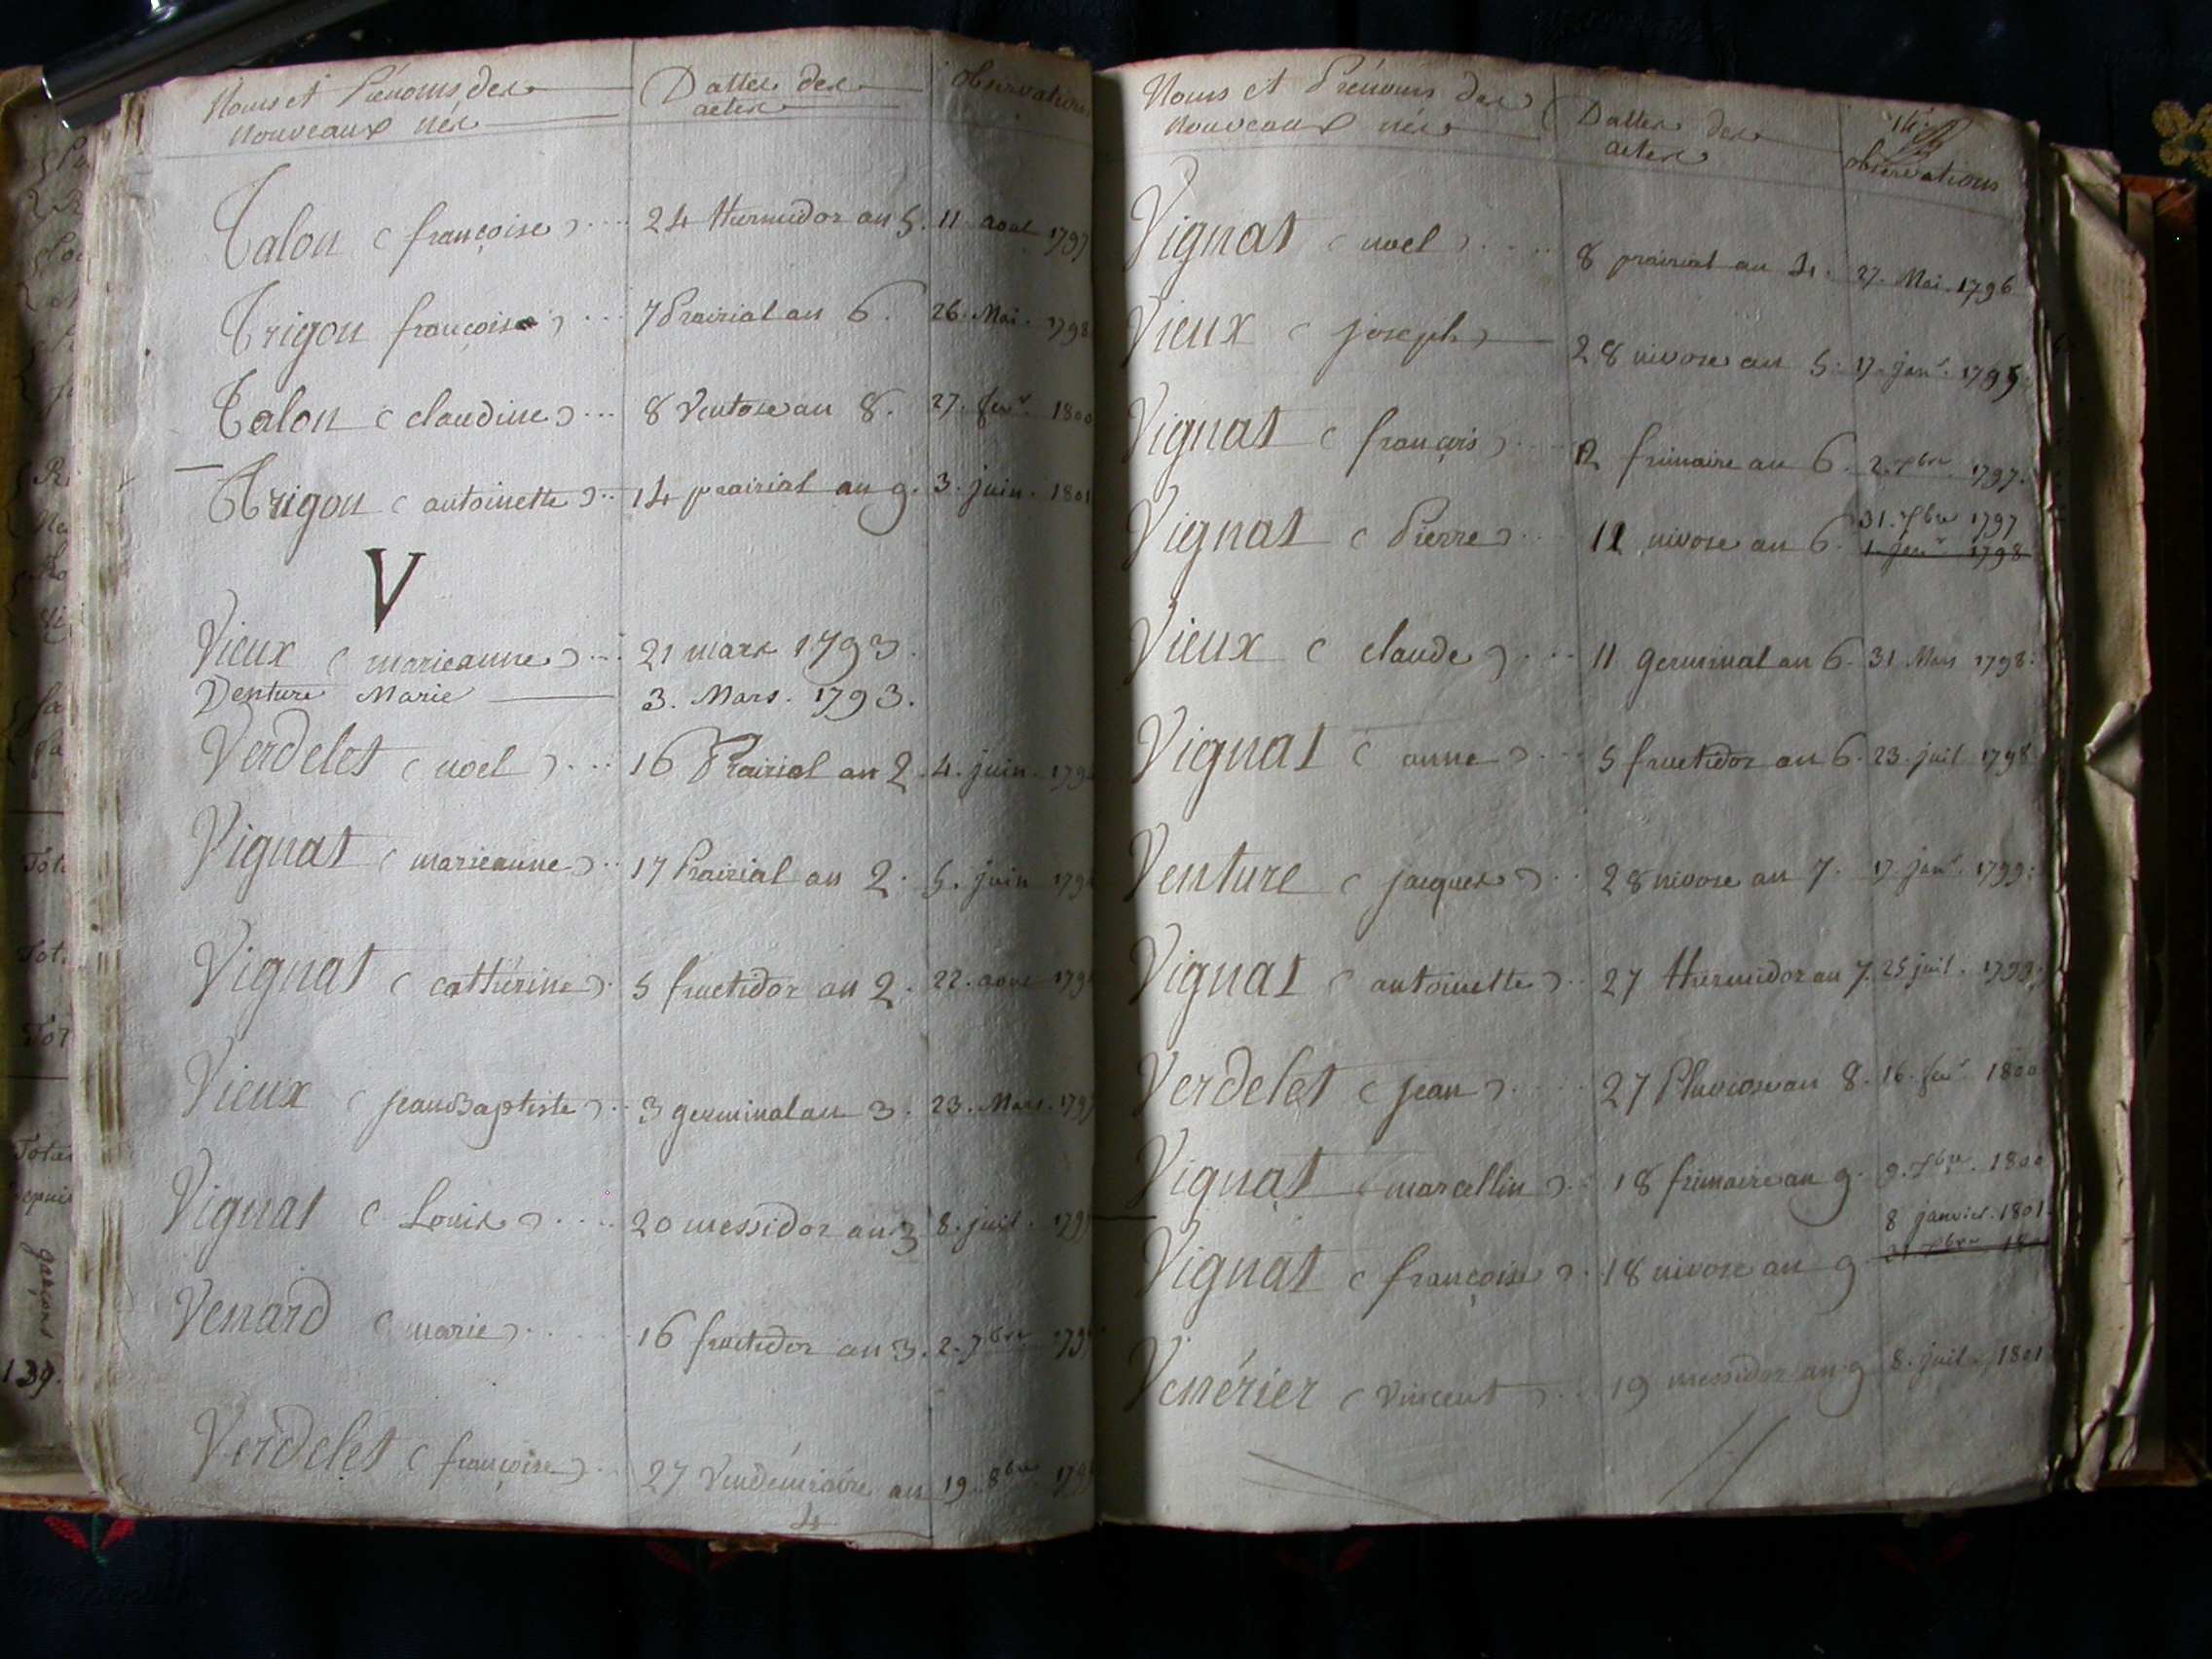 Noms et Prénoms des
nouveaux nés
Dattes des
actes
observations
Talon (françoise) .... 24 thermidor an 5. 11 aout 1797
Trigon françoise) ... 7 Prairial an 6. 26. Mai. 1798
Talon (claudine) ... 8 Ventose an 8. 27. fevr. 1800
Trigon (antoinette) .. 14 prairial an 9. 3. juin. 1801
V
Vieux (marieanne) ... 21 mars 1793.
Venture Marie 3. Mars. 1793.
Verdelet (noel) .... 16 Prairial an 2. 4. juin. 179
Vignat (marieanne) .. 17 Prairial an 2. 5. juin 179
Vignat (catherine) . 5 fructidor an 2. 22. aout 179
Vieux (jean Baptiste) .. 3 germinal an 3. 23. Mars. 179
Vignat (Louis) .... 20 messidor an 3 8. juil. 179
Venard (marie) ..... 16 fructidor an 3. 2. 7bre 179
Verdelet (françoise) .. 27 Vendémiaire an 19. 8bre 179
4
Noms et Prénoms des
nouveaux nés
Dattes des
actes
observations
Vignat (noel) ..... 8 prairial an 4. 27. Mai. 1796
Vieux (joseph) 28 nivose an 5. 17. janr. 1795
Vignat (françois) .... 12 frimaire an 6. 2. Xbre 1797.
Vignat (Pierre) ... 12 nivose an 6. 31. Xbre 1797
1 janr 1798
Vieux (claude) .... 11 germinal an 6. 31 Mars 1798.
Vignat (anne) .... 5 fructidor an 6. 23. juil 1798.
Venture (jacques) .. 28 nivose an 7. 17. janr. 1799.
Vignat (antoinette) .. 27 thermidor an 7. 25 juil. 1799.
Verdelet (jean) ..... 27 Pluviose an 8. 16. fevr. 1800
Vignat (marcellin) .. 18 frimaire an 9. 9. Xbre. 1800
8 janvier. 1801.
Vignat (françoise) . 18 nivose an 9
Venérier (Vincent) .. 19 messidor an 9 8. juil. 1801